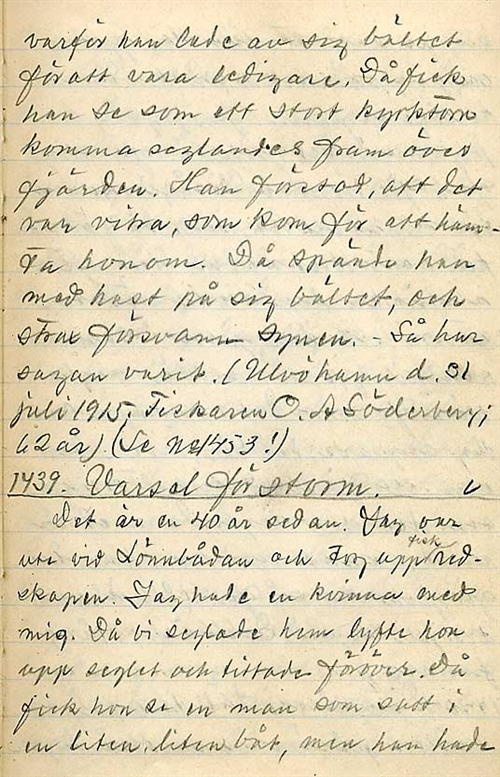 varför han lade av sig bältet
för att vara ledigare. Då fick
han se som ett stort kyrktorn
komma seglandes fram över
fjärden. Han förstod, att det
var vitra, som kom för att häm-
ta honom. Då spände han
med hast på sig bältet, och
strax försvann synen. - Så har
sagan varit. (Ulvöhamn d. 31
juli 1915. Fiskaren O. A Söderberg;
62 år). (Se No 1453!)
1439. Varsel för storm. v
Det är en 40 år sedan. Jag var
ute vid Lönnbådan och tog upp fisk red-
skapen. Jag hade en kvinna med
mig. Då vi seglade hem lyfte hon
upp seglet och tittade föröver. Då
fick hon se en man som satt i
en liten, liten båt, men han hade